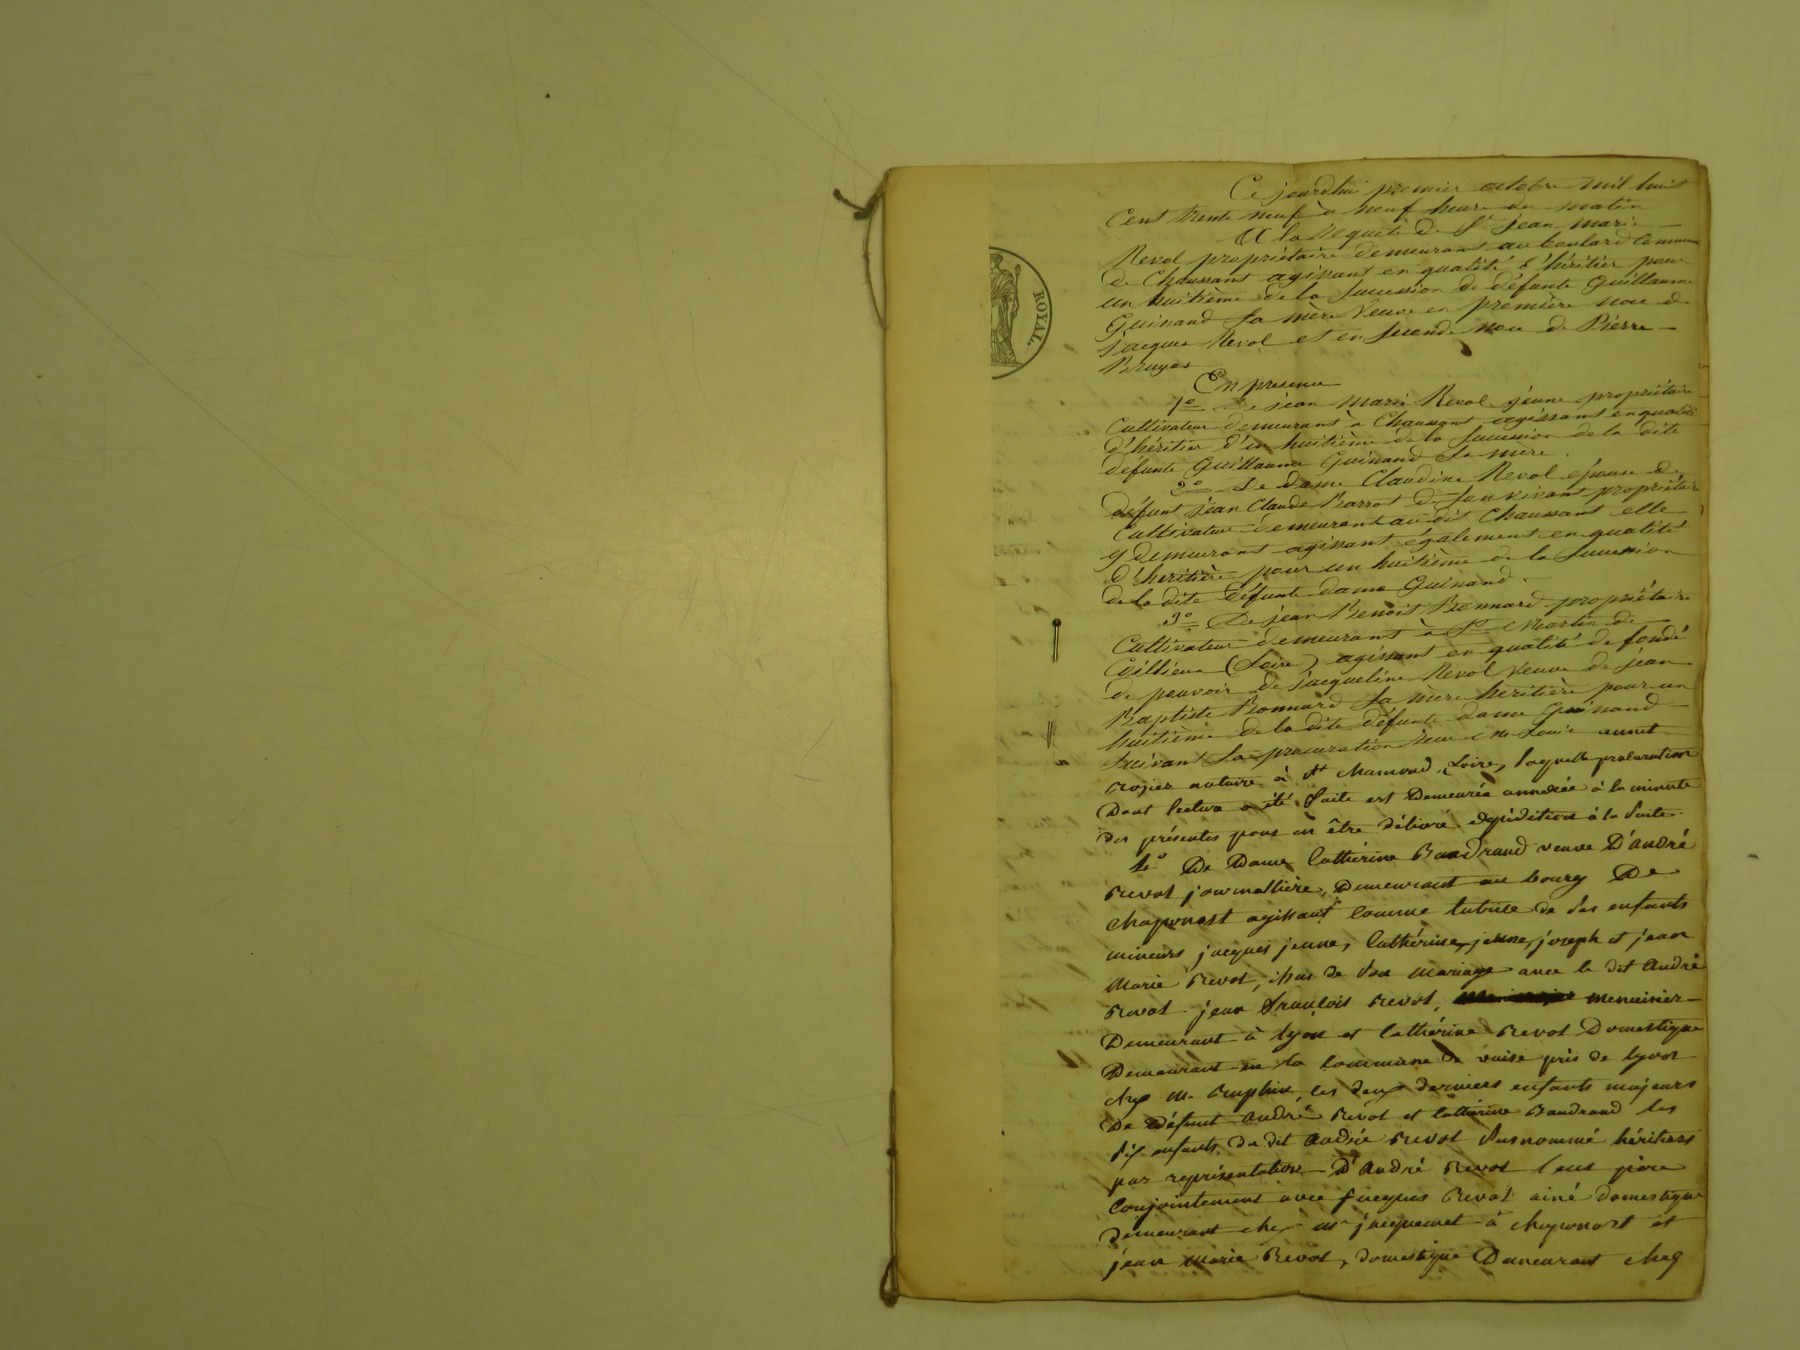 ROYAL.
Ce jourdhui premier octobre mil huit
Cent trente neuf à neuf heure du matin
A la requete de Sr jean marie
Revol propriétaire demeurant au boulard Commune
de Chaussant agissant en qualité d'héritier pour
un huitième de la sucession de défunte Guillaume
Guinand sa mère Veuve en première noce de
jacque Revol et en seconde noce de Pierre
Bruyas
En presence
1º De jean marie Revol jeune propriétaire
Cultivateur demeurant à Chaussant agissant en qualité
d'héritier d'un huitième de la sucession de la dite
défunte Guillaume Guinand sa mère.
2º De dame Claudine Revol épouse de
défunt jean Claude Barrot de son vivant propriétaire
Cultivateur demeurant au dit Chaussant elle
y demeurant agissant également en qualité
d'héritière pour un huitième de la sucession
de la dite défunte dame Guinand.
3º De jean Benoit Bonnard propriétaire
Cultivateur demeurant à St Martin de
Coillieux (Loire) agissant en qualité de fondé
de pouvoir de jacqueline Revol Veuve de jean
Baptiste Bonnard sa mère héritière pour un
huitième de la dite défunte dame Guinand
suivant la procuration reçue Me Louis annet
rozier notaire à St chamond, (Loire), laquelle procuration
dont lecture a été faite est demeurée annexée à la minute
des présentes pour en être délivré expédition à la suite.
4º De Dame Cathérine Baudrand veuve D'andré
revol journallière, Demeurant au bourg De
chaponost agissant comme tutrice de ses enfants
mineurs jacques jeune, Cathérine, jeune, joseph et jean
Marie Revol, issus de son mariage avec le dit andré
Revol jean françois revol, menuisier
Demeurant à lyon et Cathérine revol Domestique
Demeurant en la commune de vaise près de lyon
chez M. les deux derniers enfants majeurs
De défunt andré Revol et Cathérine Baudrand les
six enfants du dit andré revol susnommé héritiers
par représentation D'andré Revol leur père
Conjointement avec jacques Revol ainé domestique
demeurant chez mr jacquemet à chaponost et
jean Marie Revol, domestique Demeurant chez